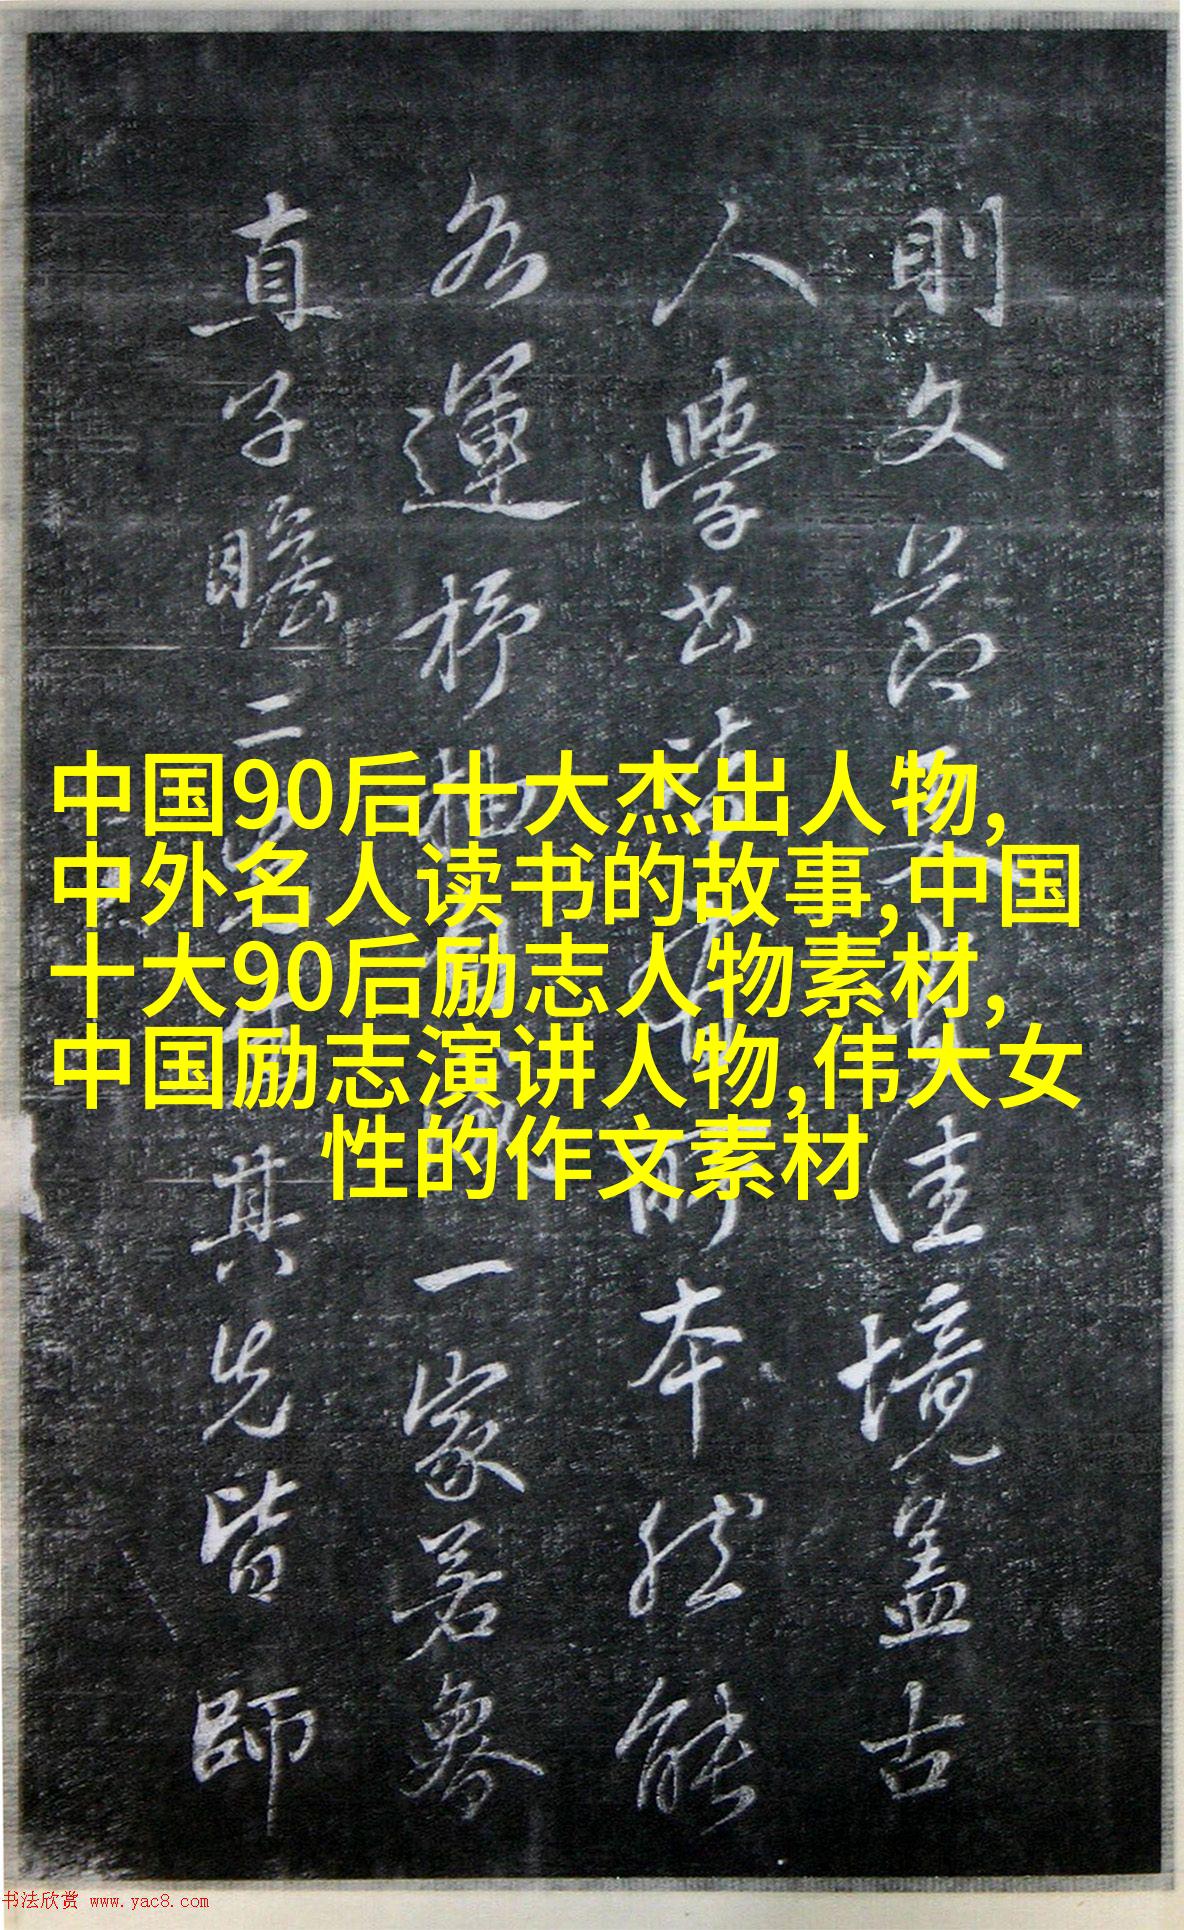 則文節 佳境盖古
人學书 所本然能
各運杼柚 一家若魯
直子瞻二 其先皆師
中国90后十大杰出人物,
中外名人读书的故事,中国
十大90后励志人物素材,
中国励志演讲人物,伟大女
性的作文素材
书法欣赏 www.yac8.com